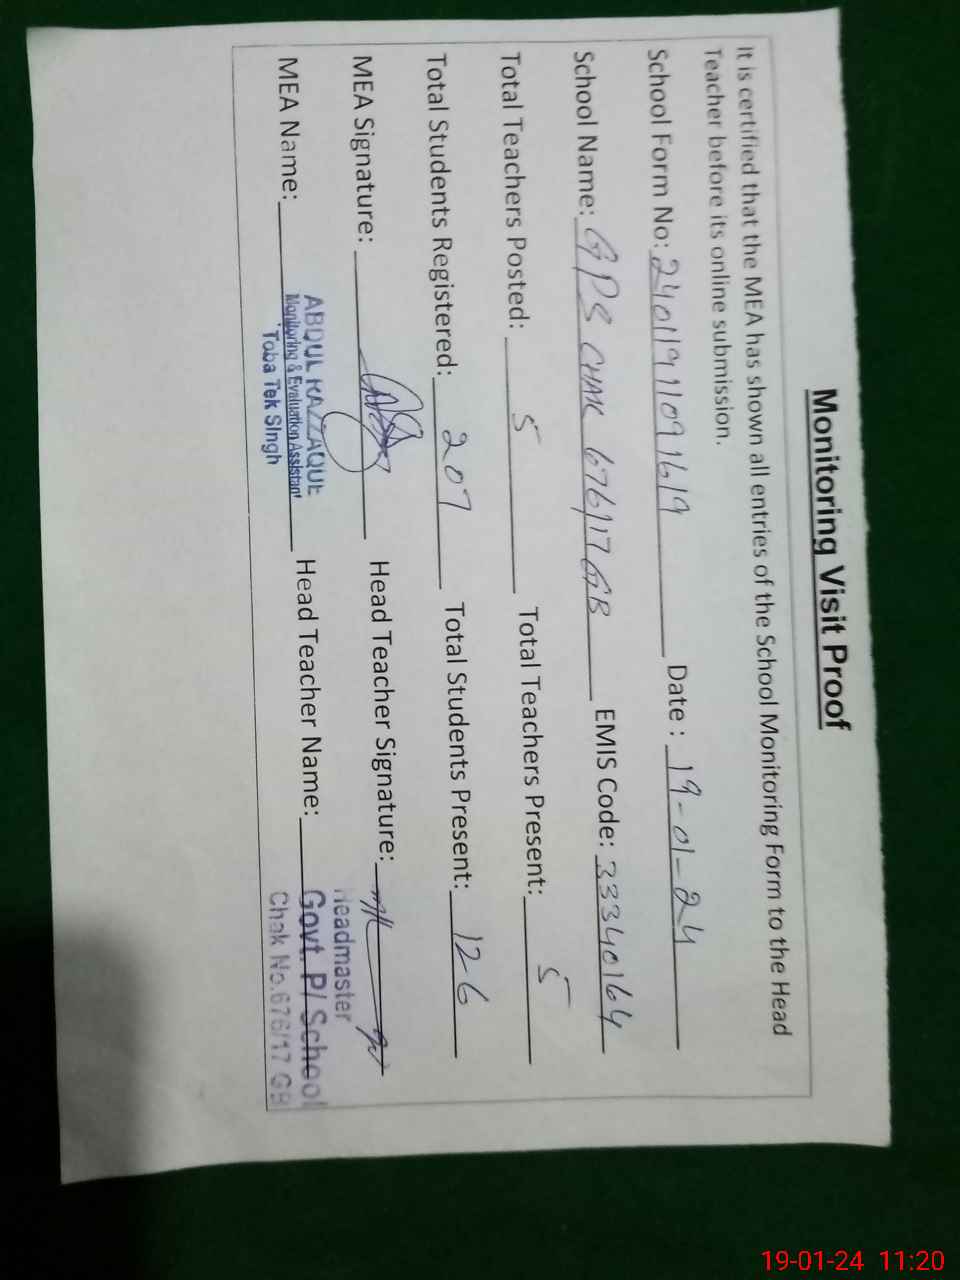 Monitoring Visit Proof
It is certified that the MEA has shown all entries of the School Monitoring Form to the Head
Teacher before its online submission.
School Form No: 24011911091619 Date : 19-01-24
School Name: GPS CHAK 676/17 GB EMIS Code: 33340164
Total Teachers Posted: 5 Total Teachers Present: 5
Total Students Registered: 207 Total Students Present: 126
MEA Signature: Head Teacher Signature:
MEA Name: ABDUL RAZZAQUE Head Teacher Name: Headmaster
Monitoring & Evaluation Assistant Govt. P/ School
Toba Tek Singh Chak No.676/17 GB
19-01-24 11:20